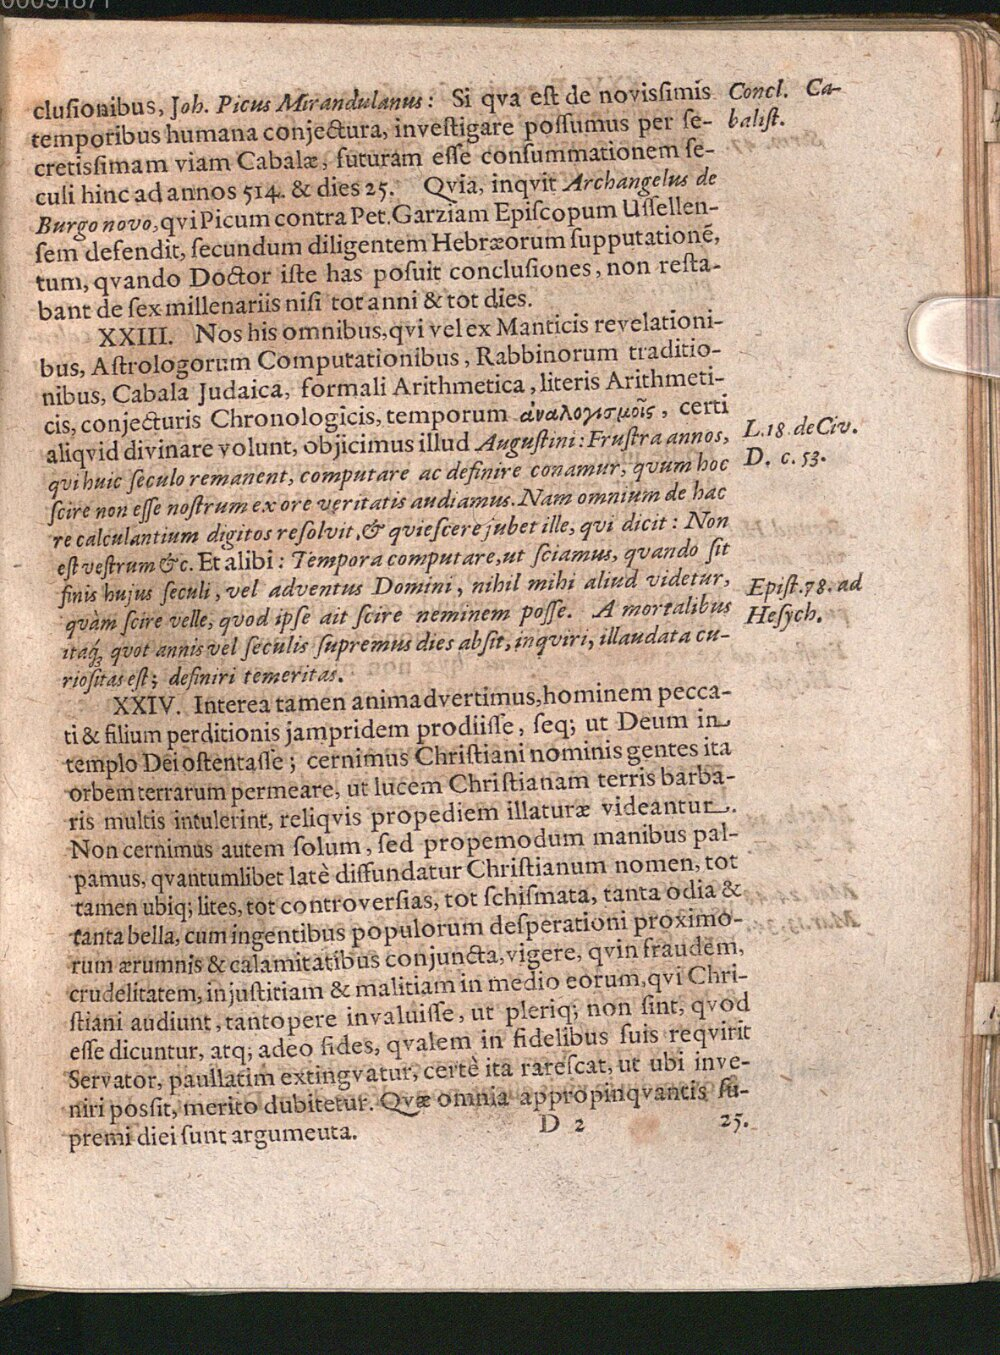 00091871
clusionibus, Joh. Picus Mirandulanus: Si qva est de novissimis
Concl. Ca-
balist.
temporibus humana conjectura, investigare possumus per se-
cretissimam viam Cabalæ, futuram esse consummationem se-
culi hinc ad annos 514. & dies 25. Qvia, inqvit Archangelus de
Burgo novo, qvi Picum contra Pet. Garziam Episcopum Ussellen-
sem defendit, secundum diligentem Hebræorum supputationẽ,
tum, qvando Doctor iste has posuit conclusiones, non resta-
bant de sex millenariis nisi tot anni & tot dies.
XXIII. Nos his omnibus, qvi vel ex Manticis revelationi-
bus, Astrologorum Computationibus, Rabbinorum traditio-
nibus, Cabala Judaica, formali Arithmetica, literis Arithmeti-
cis, conjecturis Chronologicis, temporum ἀναλογισμοῖς, certi
aliqvid divinare volunt, objicimus illud Augustini: Frustra annos,
L. 18. de Civ.
D. c. 53.
qvi huic seculo remanent, computare ac definire conamur, qvum hoc
scire non esse nostrum ex ore veritatis audiamus. Nam omnium de hac
re calculantium digitos resolvit, & qviescere jubet ille, qvi dicit: Non
est vestrum &c. Et alibi: Tempora computare, ut sciamus, qvando sit
finis hujus seculi, vel adventus Domini, nihil mihi aliud videtur,
Epist. 78. ad
Hesych.
qvàm scire velle, qvod ipse ait scire neminem posse. A mortalibus
itaq; qvot annis vel seculis supremus dies absit, inqviri, illaudata cu-
riositas est; definiri temeritas.
XXIV. Interea tamen animadvertimus, hominem pecca-
ti & filium perditionis jampridem prodiisse, seq; ut Deum in
templo Dei ostentasse; cernimus Christiani nominis gentes ita
orbem terrarum permeare, ut lucem Christianam terris barba-
ris multis intulerint, reliqvis propediem illaturæ videantur.
Non cernimus autem solum, sed propemodum manibus pal-
pamus, qvantumlibet latè diffundatur Christianum nomen, tot
tamen ubiq; lites, tot controversias, tot schismata, tanta odia &
tanta bella, cum ingentibus populorum desperationi proximo-
rum ærumnis & calamitatibus conjuncta, vigere, qvin fraudem,
crudelitatem, injustitiam & malitiam in medio eorum, qvi Chri-
stiani audiunt, tantopere invaluisse, ut pleriq; non sint, qvod
esse dicuntur, atq; adeo fides, qvalem in fidelibus suis reqvirit
Servator, paullatim extingvatur, certè ita rarescat, ut ubi inve-
niri possit, merito dubitetur. Qvæ omnia appropinqvantis su-
premi diei sunt argumeuta.
D 2
25.